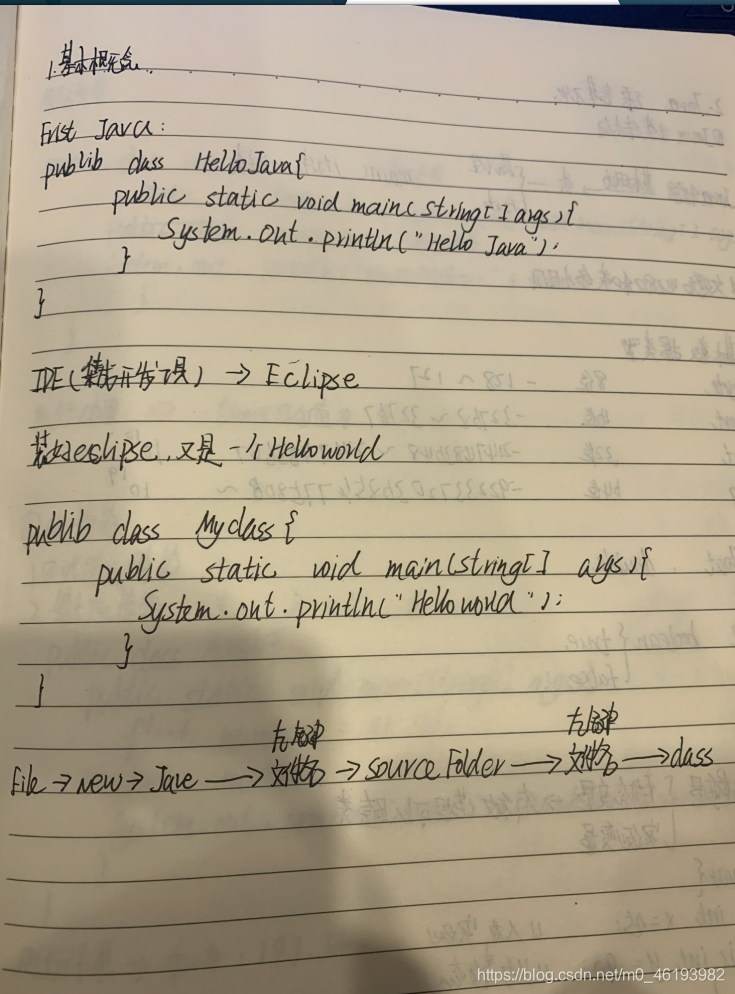 1.基本概念.
Frist Java:
publib class HelloJava{
public static void main(string[] args){
System.out.println("Hello Java");
}
}
IDE(集成开发工具) → Eclipse
装好eclipse,又是一个Helloworld
publib class Myclass{
public static void main(string[] args){
System.out.println("Helloworld");
}
}
右键 右键
File → new → Jave → 文件名 → source Folder → 文件名 → class
https://blog.csdn.net/m0_46193982